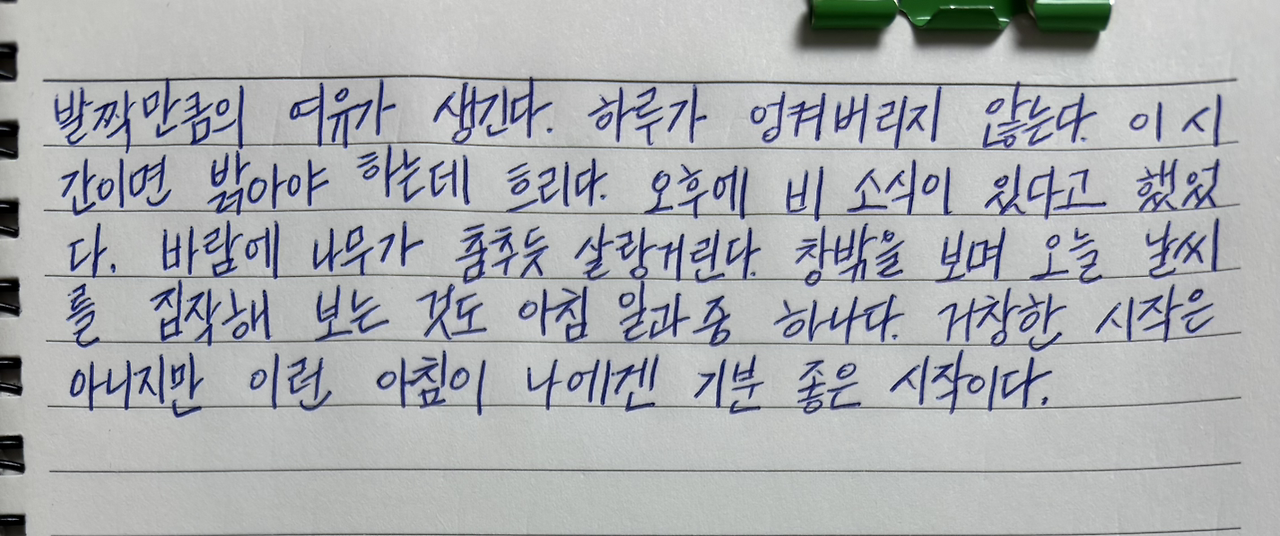 발짝만큼의 여유가 생긴다. 하루가 엉켜버리지 않는다. 이 시
간이면 밝아야 하는데 흐리다. 오후에 비 소식이 있다고 했었
다. 바람에 나무가 춤추듯 살랑거린다. 창밖을 보며 오늘 날씨
를 짐작해 보는 것도 아침 일과 중 하나다. 거창한 시작은
아니지만 이런 아침이 나에겐 기분 좋은 시작이다.